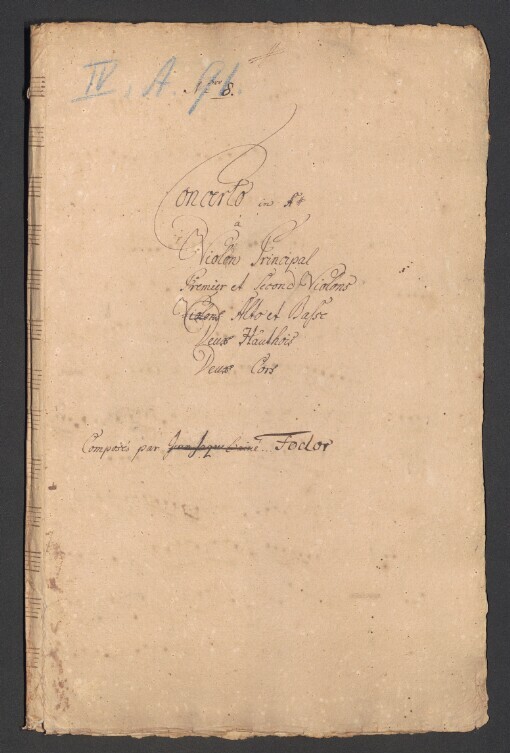 IV. A. 91.
Nro 8.
Concerto in
à
Violon Principal
Premier et Second Violons
Violons Alto et Basse
Deux Hautbois
Deux Cors
Composés par Fodor